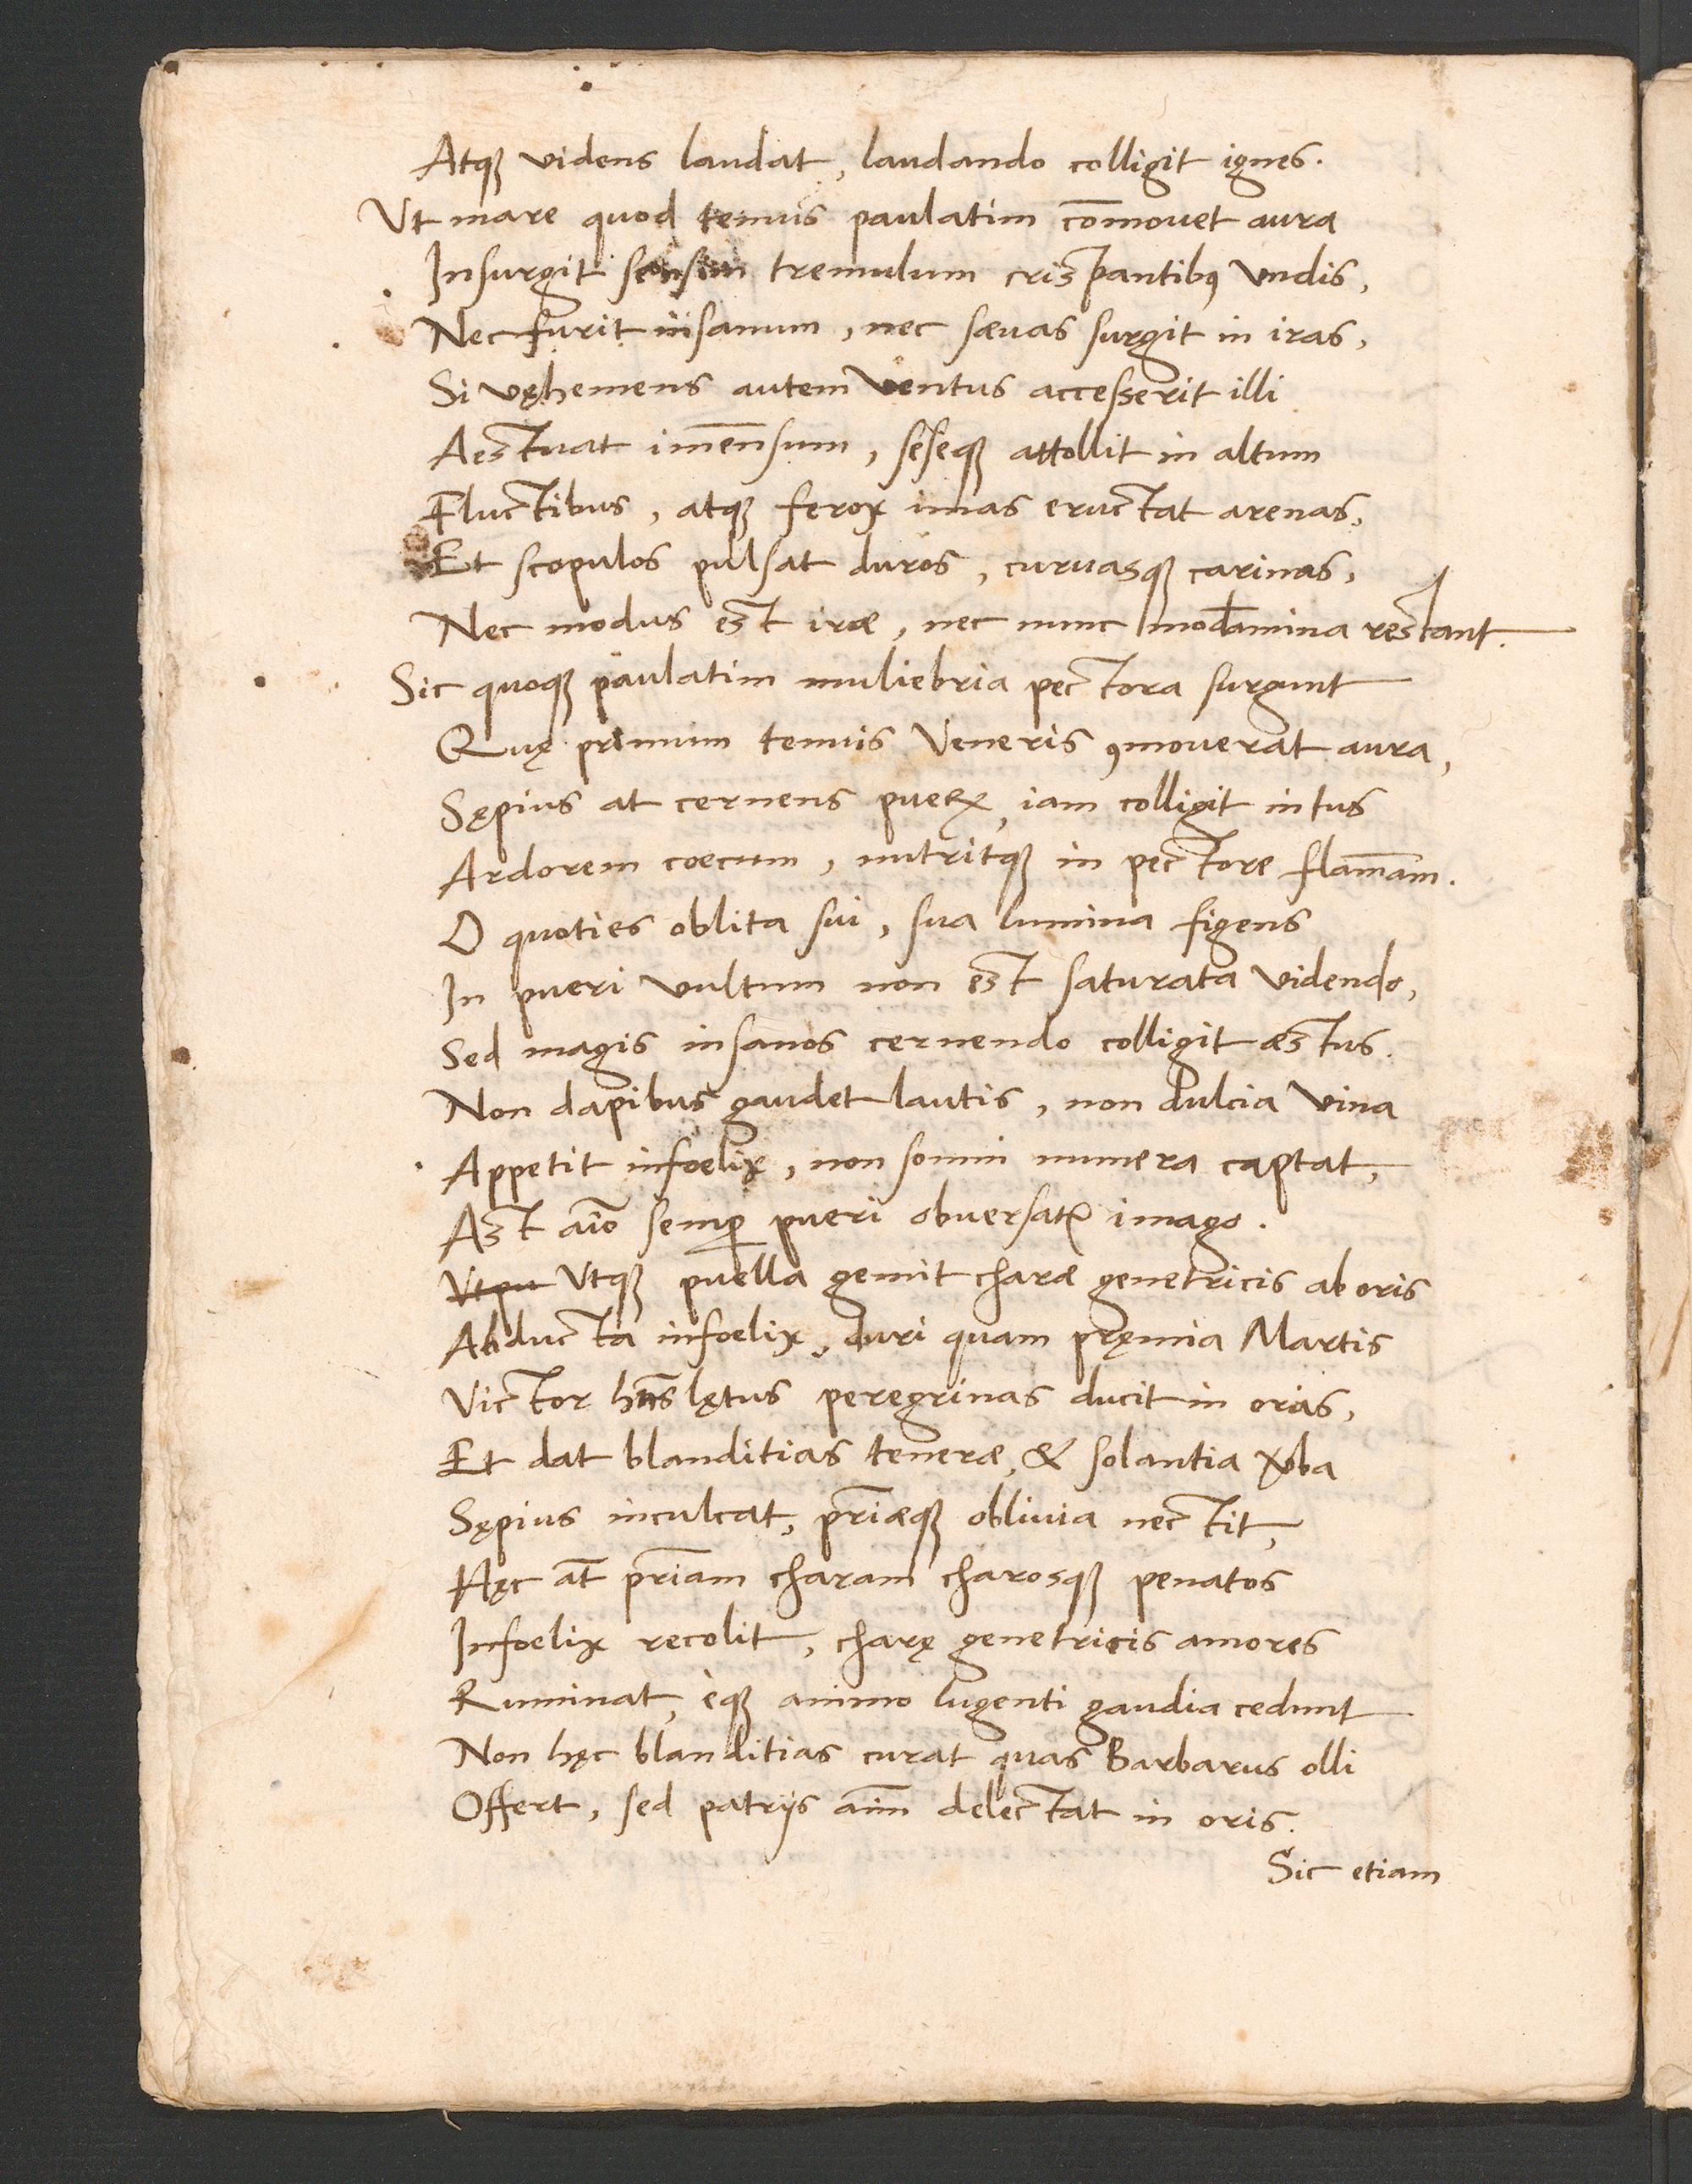 Atq; videns laudat, laudando colligit ignes.
Vt mare quod tenuis paulatim com̄ouet aura
Insurgit sensim tremulum crispantibꝰ vndis,
Nec furit insanum, nec sæuas surgit in iras,
Si vęhemens autem ventus accesserit illi
Aestuat im̄ensum, seseq; attollit in altum
Fluctibus, atq; ferox imas eructat arenas,
Et scopulos pulsat duros, curuasq; carinas,
Nec modus est iræ, nec nunc modamina restant.
Sic quoq; paulatim muliebria pectora surgunt
Quę primum tenuis Veneris ꝯmouerat aura,
Sępius at cernens pueꝝ, iam colligit intus
Ardorem coecum, nutritq; in pectore flam̄am.
O quoties oblita sui, sua lumina figens
In pueri vultum non est saturata videndo,
Sed magis insanos cernendo colligit æstus.
Non dapibus gaudet lautis, non dulcia vina
Appetit infoelix, non somni munera captat,
Ast aīo semp̲ pueri obuersatꝛ imago.
Vtpu Vtq; puella gemit charæ genetricis ab oris
Abducta infoelix, duri quam pręmia Martis
Victor hn̄s lętus peregrinas ducit in oras,
Et dat blanditias teneræ, & solantia v̓ba
Sępius inculcat, pr̄iæq; obliuia nectit,
Hęc at̄ pr̄iam charam charosq; penatos
Infoelix recolit, charę genetricis amores
Ruminat, èq; animo lugenti gaudia cedunt
Non hęc blanditias curat quas Barbarus olli
Offert, sed patrijs aīm delectat in oris.
Sic etiam